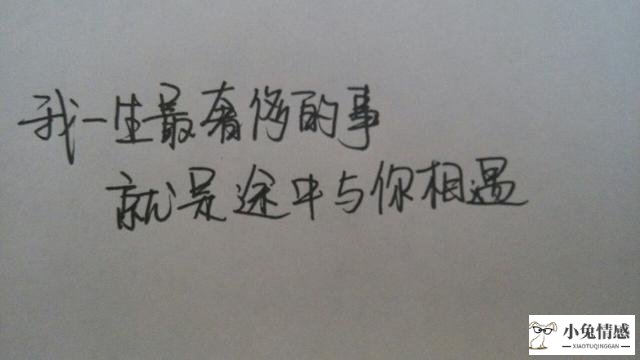 我一生最奢侈的事
就是途中与你相遇
小兔情感
XIAOTUQINGGAN